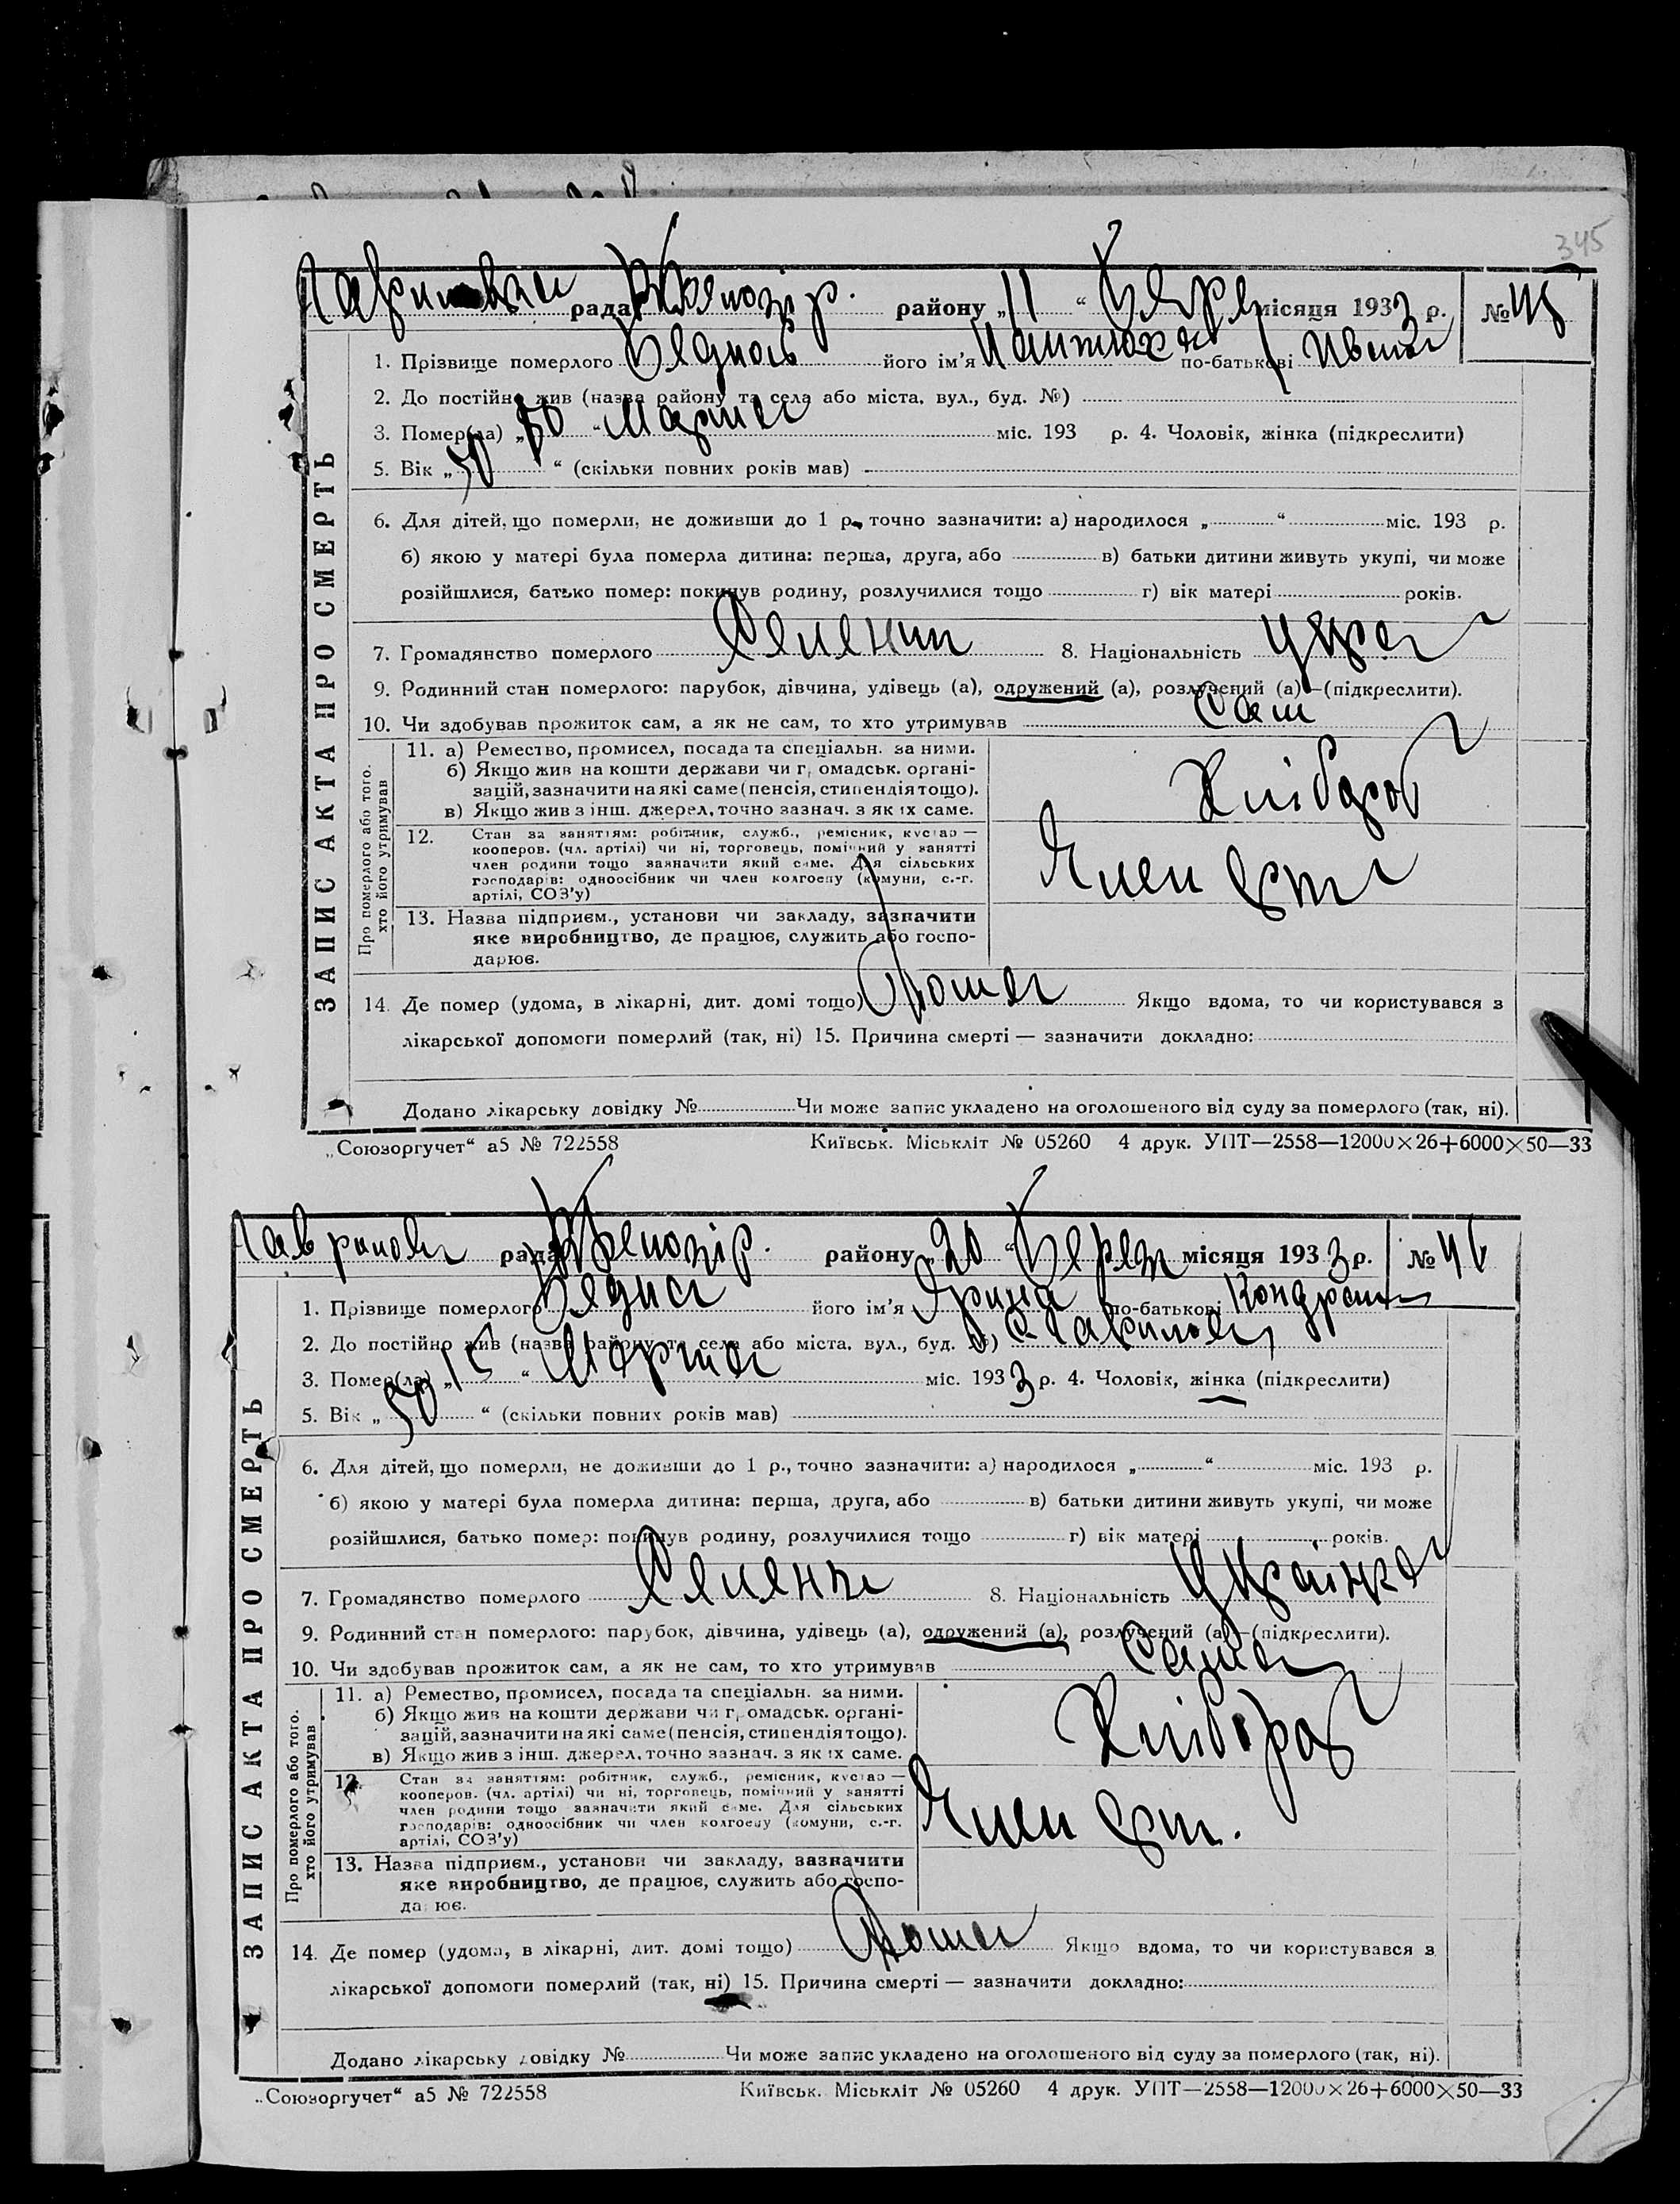 345
рада району „11“ місяця 1933 р. №45
1. Прізвище померлого його ім'я по-батькові Иванов
2. До постійно жив (назва району та села або міста, вул., буд. №)
3. Помер(ла) „ “ Марта міс. 193 р. 4. Чоловік, жінка (підкреслити)
5. Вік „50“ (скільки повних років мав)
6. Для дітей, що померли, не доживши до 1 р., точно зазначити: а) народилося „ “ міс. 193 р.
б) якою у матері була померла дитина: перша, друга, або в) батьки дитини живуть укупі, чи може
розійшлися, батько помер: покинув родину, розлучилися тощо г) вік матері років.
7. Громадянство померлого 8. Національність Укра
9. Родинний стан померлого: парубок, дівчина, удівець (а), одружений (а), розлучений (а)—(підкреслити).
10. Чи здобував прожиток сам, а як не сам, то хто утримував Сам
11. а) Ремество, промисел, посада та спеціальн. за ними.
б) Якщо жив на кошти держави чи громадськ. органі-
зацій, зазначити на які саме (пенсія, стипендія тощо).
в) Якщо жив з інш. джерел, точно зазнач. з яких саме.
Хлібороб
12. Стан за заняттям: робітник, служб., ремісник, кустар —
кооперов. (чл. артілі) чи ні, торговець, помічний у занятті
член родини тощо зазначити який саме. Для сільських
господарів: одноосібник чи член колгоспу (комуни, с.-г.
артілі, СОЗ'у)
Член арт
13. Назва підприєм., установи чи закладу, зазначити
яке виробництво, де працює, служить або госпо-
дарює.
14. Де помер (удома, в лікарні, дит. домі тощо) Дома Якщо вдома, то чи користувався з
лікарської допомоги померлий (так, ні) 15. Причина смерті — зазначити докладно:
Додано лікарську довідку № Чи може запис укладено на оголошеного від суду за померлого (так, ні).
ЗАПИС АКТА ПРО СМЕРТЬ
Про померлого або того,
хто його утримував
„Союзоргучет“ а5 № 722558 Київськ. Міськліт № 05260 4 друк. УПТ—2558—12000×26+6000×50—33
рада району „20“ Берез місяця 1933 р. №46
1. Прізвище померлого Бедна його ім'я Ярина по-батькові Кондрат
2. До постійно жив (назва району та села або міста, вул., буд. №) с.
3. Помер(ла) „15“ Марта міс. 1933 р. 4. Чоловік, жінка (підкреслити)
5. Вік „50“ (скільки повних років мав)
6. Для дітей, що померли, не доживши до 1 р., точно зазначити: а) народилося „ “ міс. 193 р.
б) якою у матері була померла дитина: перша, друга, або в) батьки дитини живуть укупі, чи може
розійшлися, батько помер: покинув родину, розлучилися тощо г) вік матері років.
7. Громадянство померлого 8. Національність Українка
9. Родинний стан померлого: парубок, дівчина, удівець (а), одружений (а), розлучений (а)—(підкреслити).
10. Чи здобував прожиток сам, а як не сам, то хто утримував Сама
11. а) Ремество, промисел, посада та спеціальн. за ними.
б) Якщо жив на кошти держави чи громадськ. органі-
зацій, зазначити на які саме (пенсія, стипендія тощо).
в) Якщо жив з інш. джерел, точно зазнач. з яких саме.
Хлібороб
12. Стан за заняттям: робітник, служб., ремісник, кустар —
кооперов. (чл. артілі) чи ні, торговець, помічний у занятті
член родини тощо зазначити який саме. Для сільських
господарів: одноосібник чи член колгоспу (комуни, с.-г.
артілі, СОЗ'у)
Член арт.
13. Назва підприєм., установи чи закладу, зазначити
яке виробництво, де працює, служить або госпо-
дарює.
14. Де помер (удома, в лікарні, дит. домі тощо) Дома Якщо вдома, то чи користувався з
лікарської допомоги померлий (так, ні) 15. Причина смерті — зазначити докладно:
Додано лікарську довідку № Чи може запис укладено на оголошеного від суду за померлого (так, ні).
ЗАПИС АКТА ПРО СМЕРТЬ
Про померлого або того,
хто його утримував
„Союзоргучет“ а5 № 722558 Київськ. Міськліт № 05260 4 друк. УПТ—2558—12000×26+6000×50—33